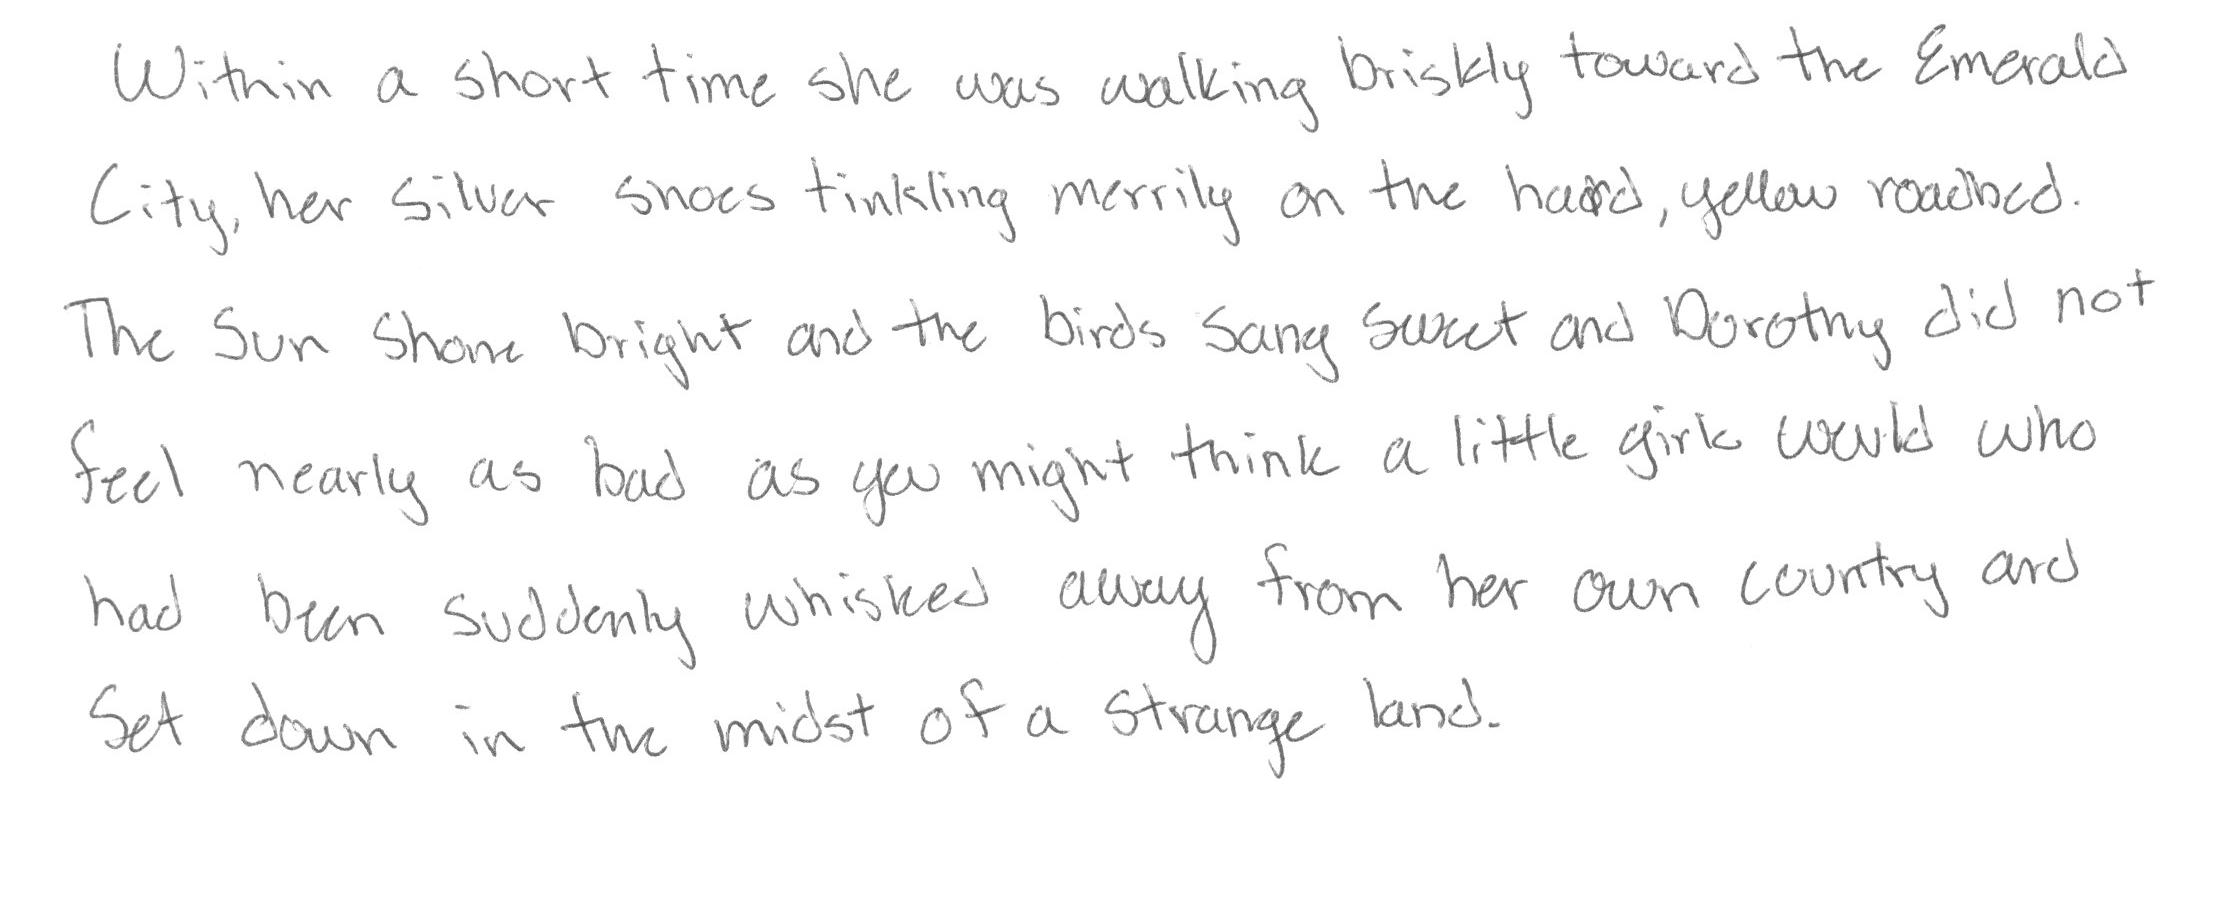 Within a short time she was walking briskly toward the Emerald
City, her silver shoes tinkling merrily on the hard, yellow roadbed.
The sun shone bright and the birds sang sweet and Dorothy did not
feel nearly as bad as you might think a little girl would who
had been suddenly whisked away from her own country and
set down in the midst of a strange land.